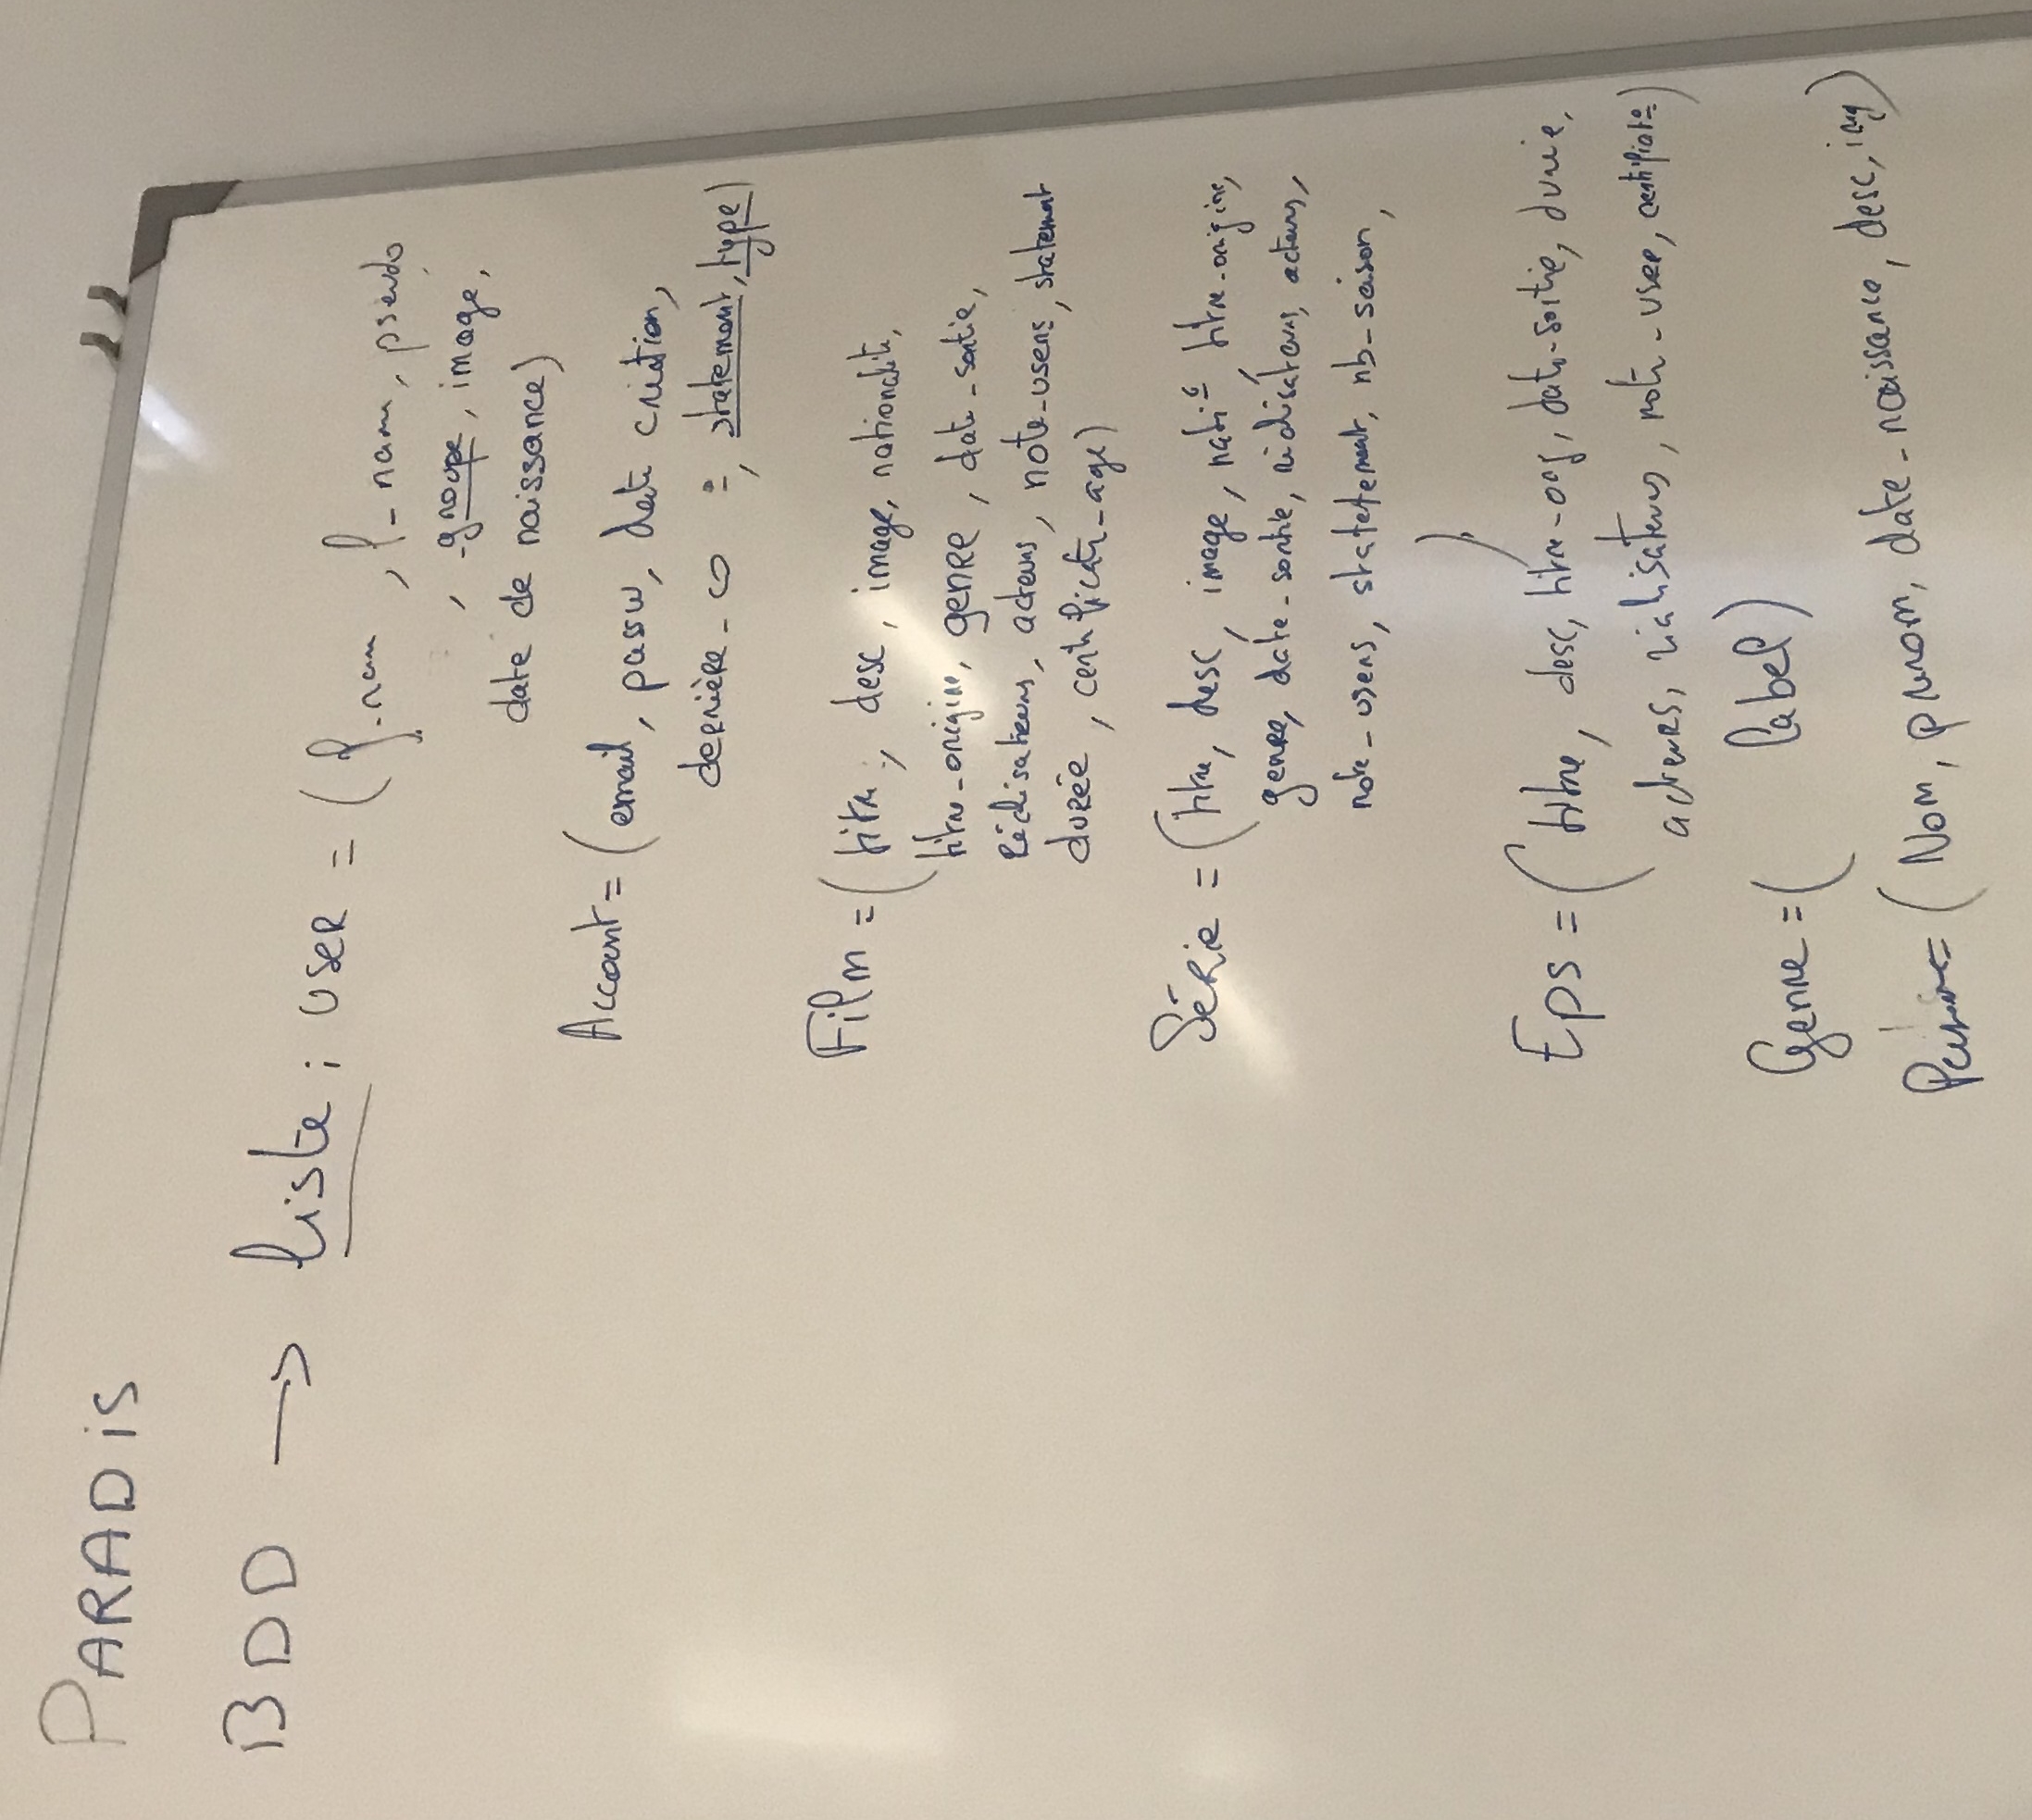 PARADiS
BDD → liste ; USER = ( f_nam , l_nam, pseudo
, groupe, image,
date de naissance)
Account = (email, passw, date création,
dernière_co , statement, type)
Film = ( titre, desc, image, nationalité,
titre_origine, genre, date_sortie,
Réalisateurs, acteurs, note_users, statement
durée, certificate_age)
Série = (titre, desc, image, nati té, titre_origine,
genre, date_sortie, réalisateurs, acteurs,
note_users, statetement, nb_saison,
)
Eps = ( titre, desc, titre_org, date_sortie, durée,
acteurs, réalisateurs, note_user, )
Genre = ( label)
= ( Nom, prenom, date_naissance, desc, img)